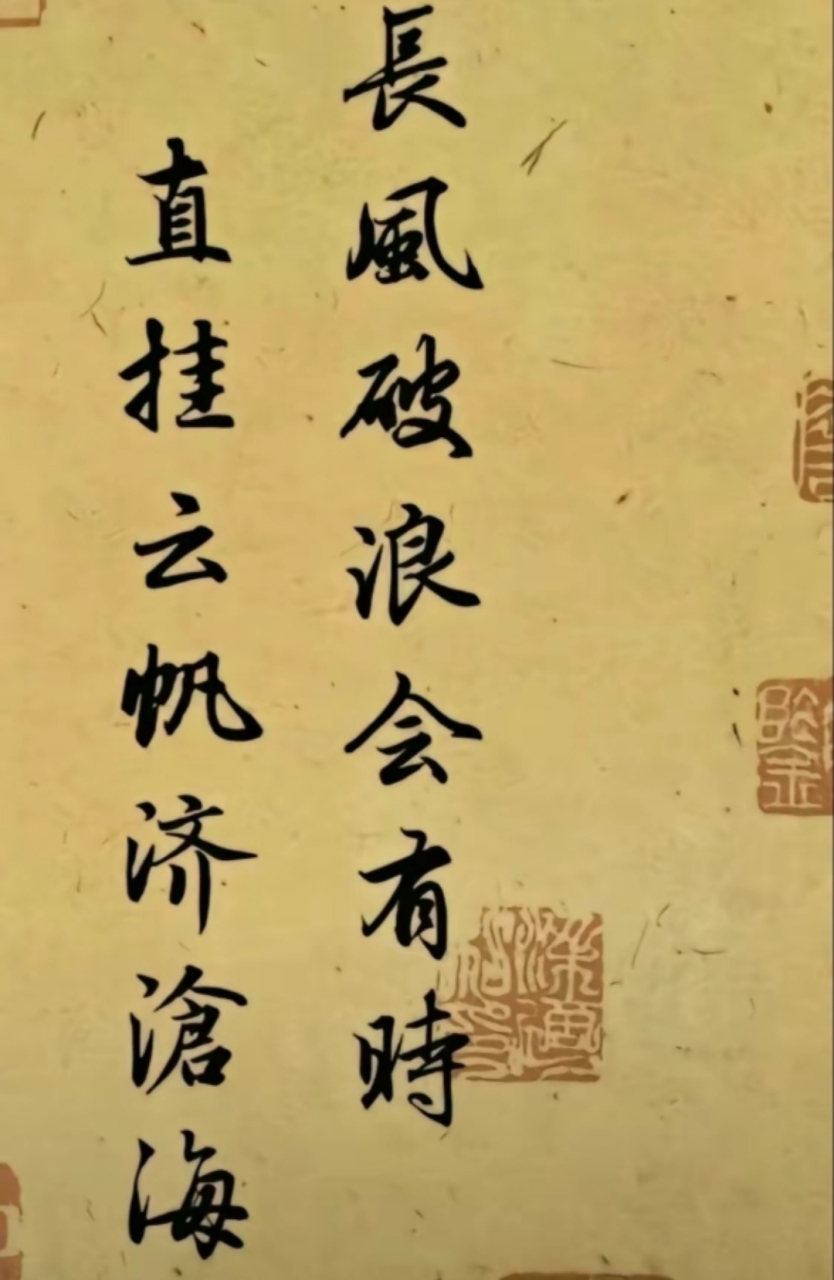 長風破浪会有時
直挂云帆济滄海